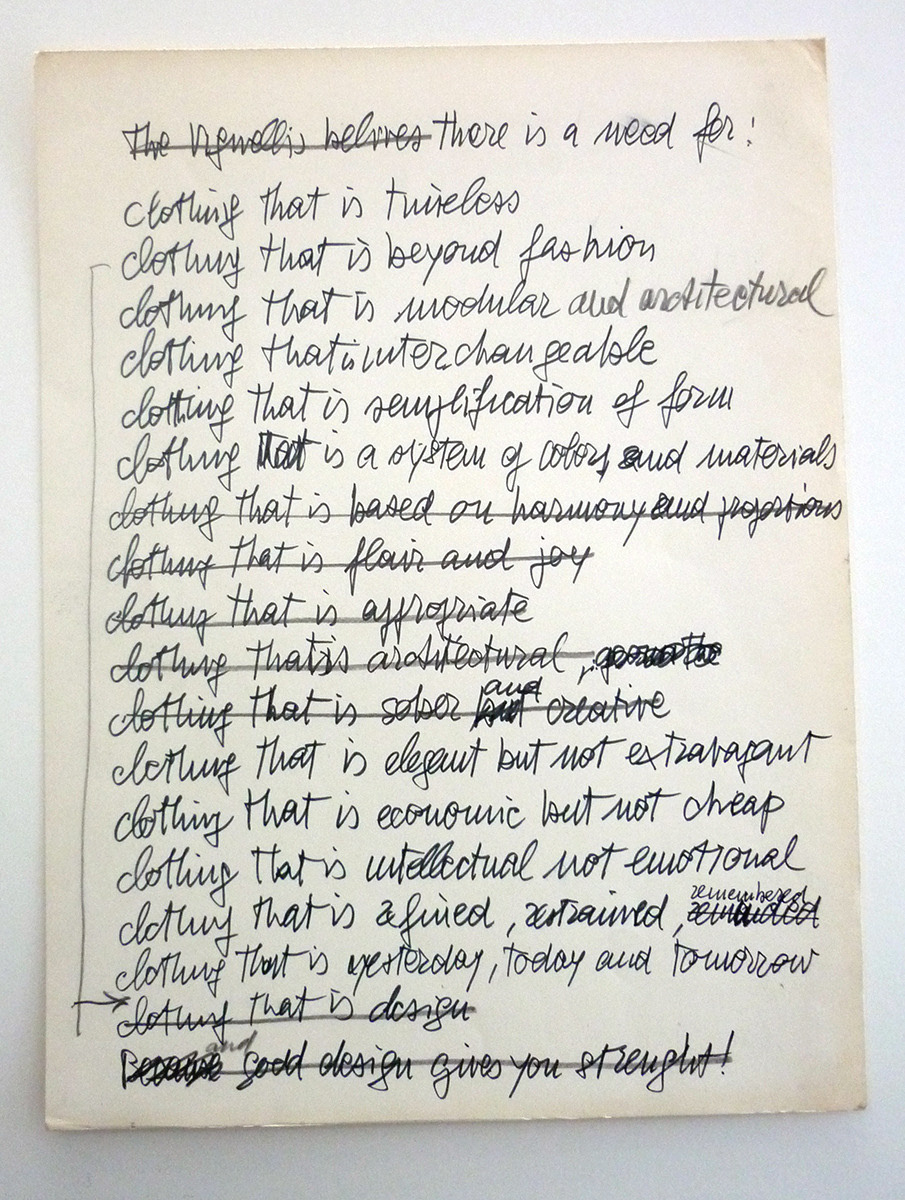 the Vignellis belives there is a need for:
clothing that is timeless
clothing that is beyond fashion
clothing that is modular and architectural
clothing that is interchangeable
clothing that is semplification of form
clothing that is a system of colors, and materials
clothing that is based on harmony and proportions
clothing that is flair and joy
clothing that is appropriate
clothing that is architectural,
clothing that is sober but and creative
clothing that is elegant but not extravagant
clothing that is economic but not cheap
clothing that is intellectual not emotional
clothing that is refined, restrained, remembered
clothing that is yesterday, today and tomorrow
clothing that is design
Because and good design gives you strenght!